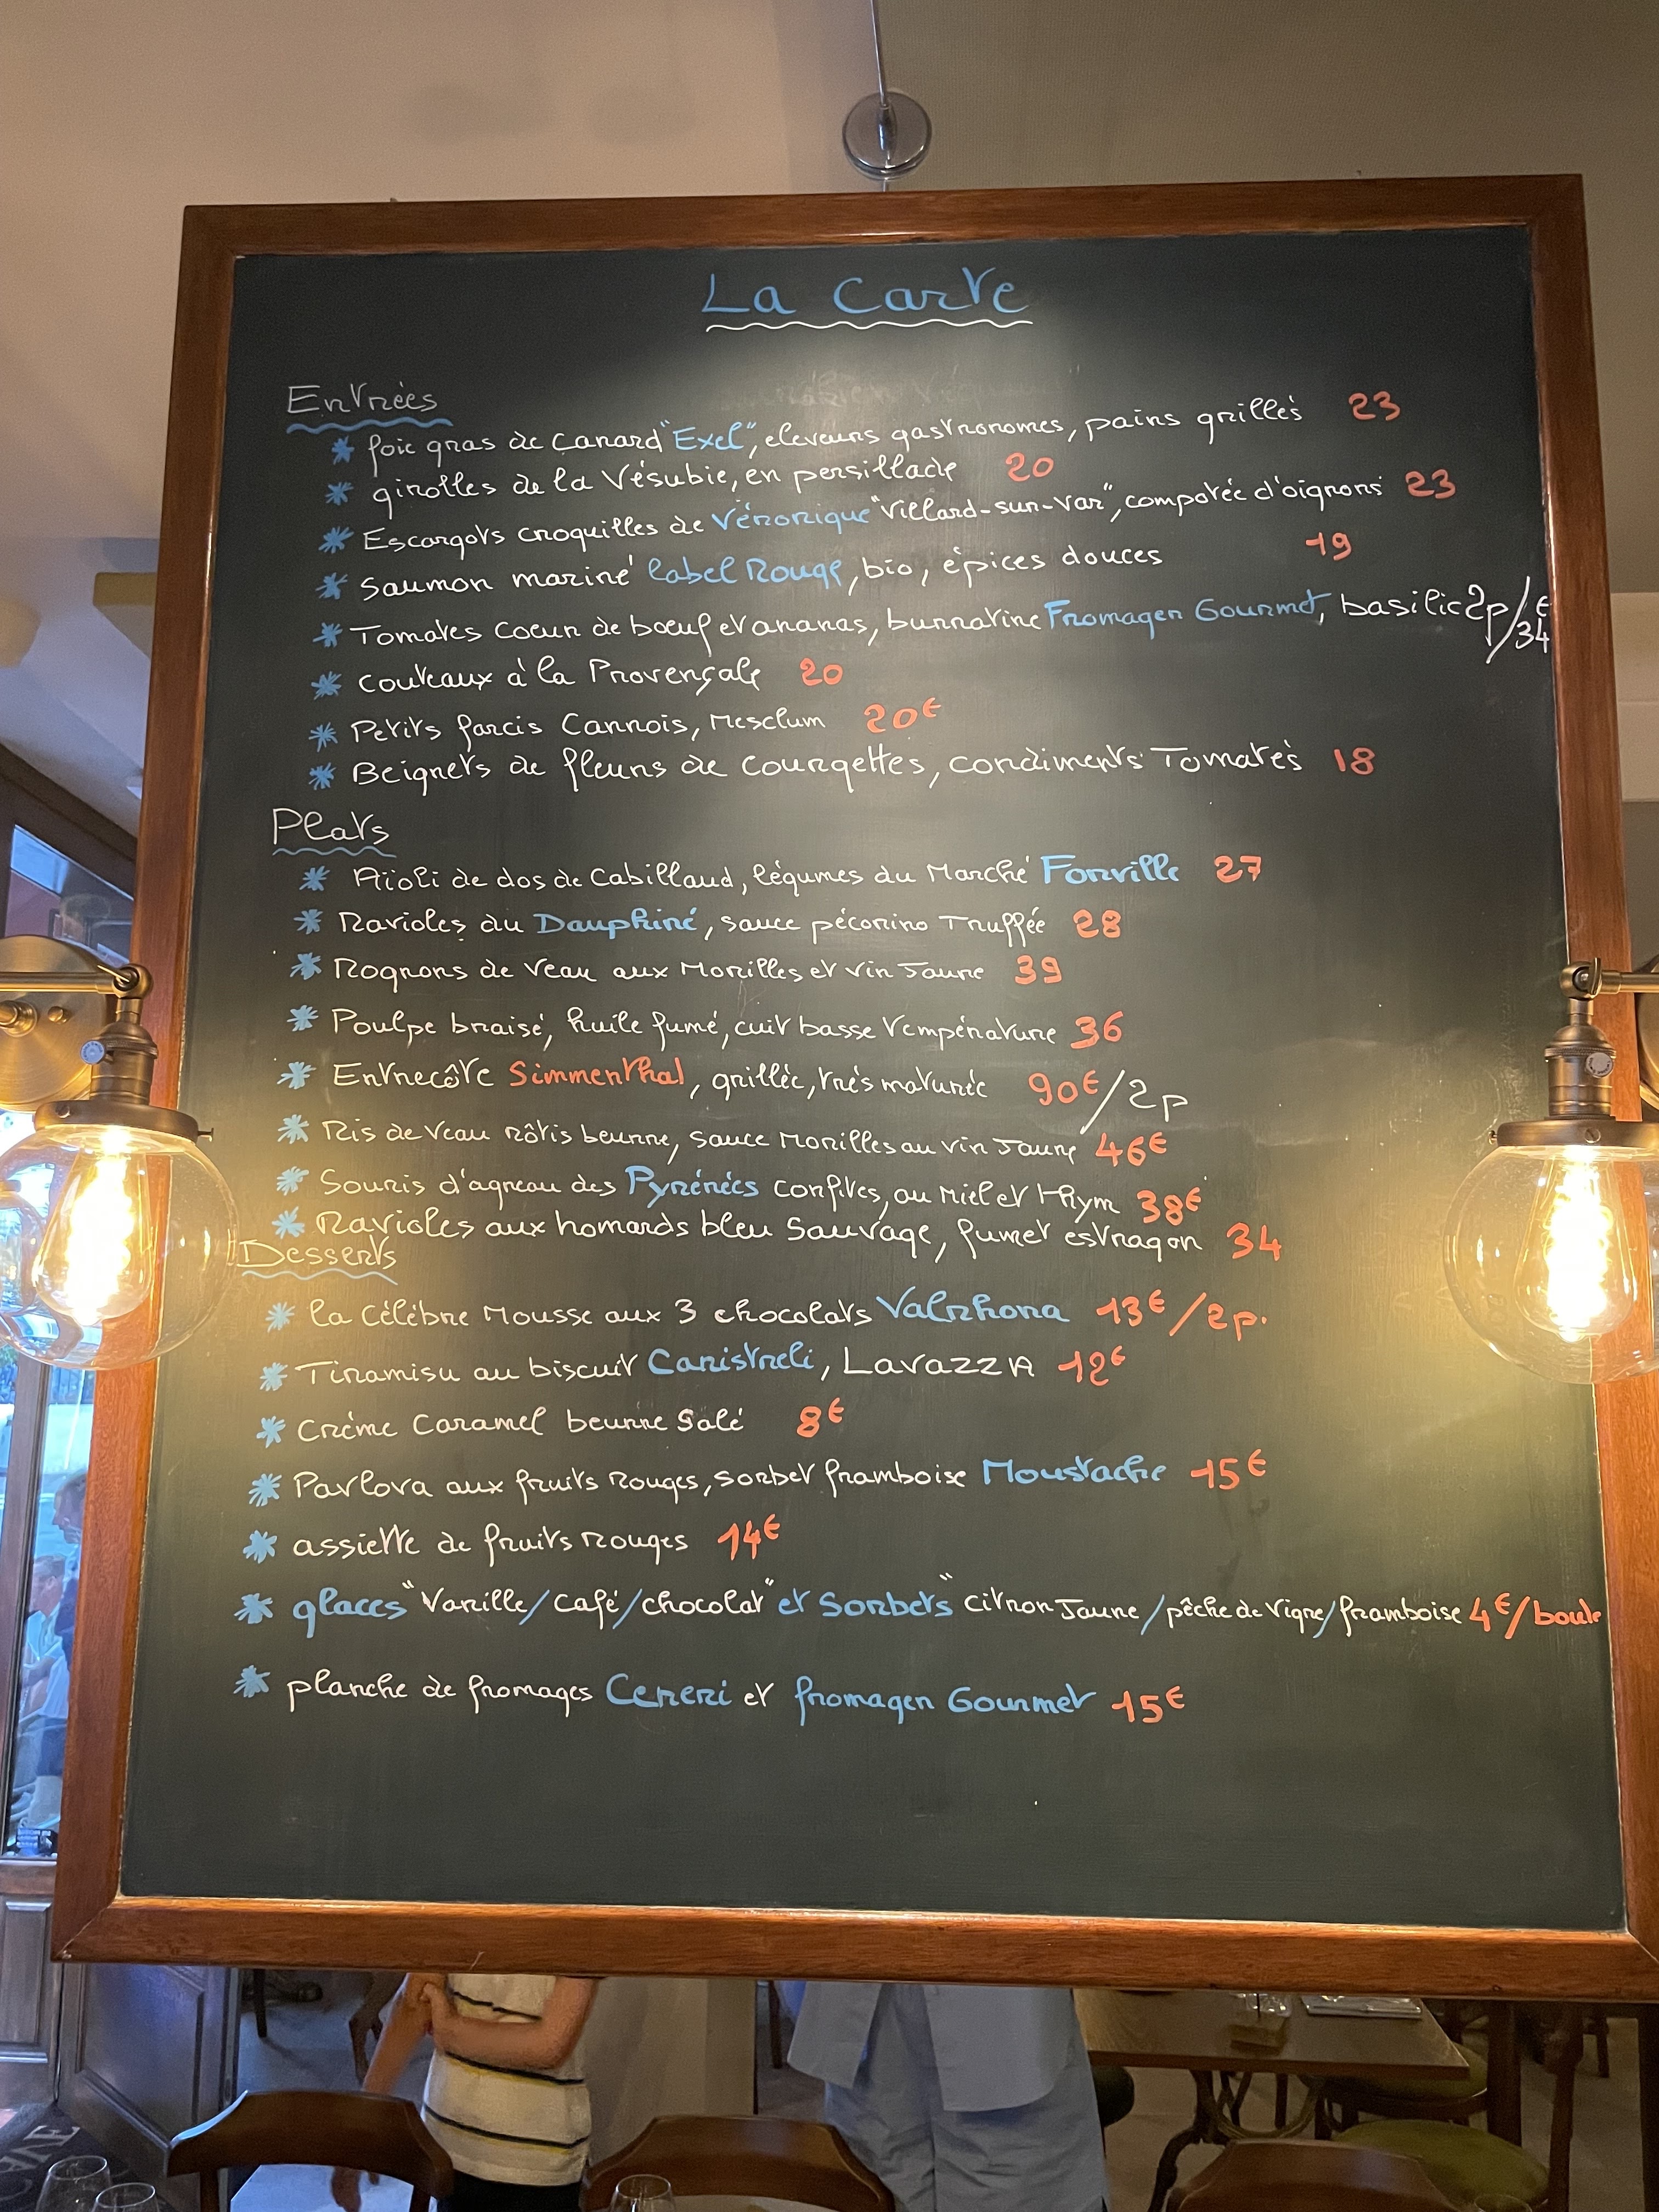 La Carte
Entrées
* foie gras de Canard "Exel", eleveurs gastronomes, pains grillés 23
* girolles de la Vésubie, en persillade 20
* Escargots croquilles de Véronique "Villard-sur-Var", compotée d'oignons 23
* Saumon mariné label Rouge, bio, épices douces 19
* Tomates Coeur de bœuf et ananas, burratine Fromager Gourmet, basilic 2p/34€
* Couteaux à la Provençale 20
* Petits farcis Cannois, Mesclum 20€
* Beignets de fleurs de Courgettes, condiments Tomates 18
Plats
* Aïoli de dos de Cabillaud, légumes du Marché Forville 27
* Ravioles du Dauphiné, sauce pécorino Truffée 28
* Rognons de Veau aux Morilles et vin Jaune 39
* Poulpe braisé, huile fumé, cuit basse Température 36
* Entrecôte Simmenthal, grillée, très maturée 90€/2p
* Ris de Veau rôtis beurre, sauce Morilles au vin Jaune 46€
* Souris d'agneau des Pyrénées confites, au Miel et Thym 38€
* Ravioles aux homards bleu Sauvage, fumet estragon 34
Desserts
* la Célébre Mousse aux 3 chocolats Valrhona 13€/2p.
* Tiramisu au biscuit Canistreli, LavazzA 12€
* Crème Caramel beurre Salé 8€
* Pavlova aux fruits Rouges, sorbet framboise Moustache 15€
* assiette de fruits Rouges 14€
* glaces "Vanille/café/chocolat" et Sorbets "citron Jaune/pêche de Vigne/framboise 4€/boule
* planche de fromages Ceneri et fromager Gourmet 15€